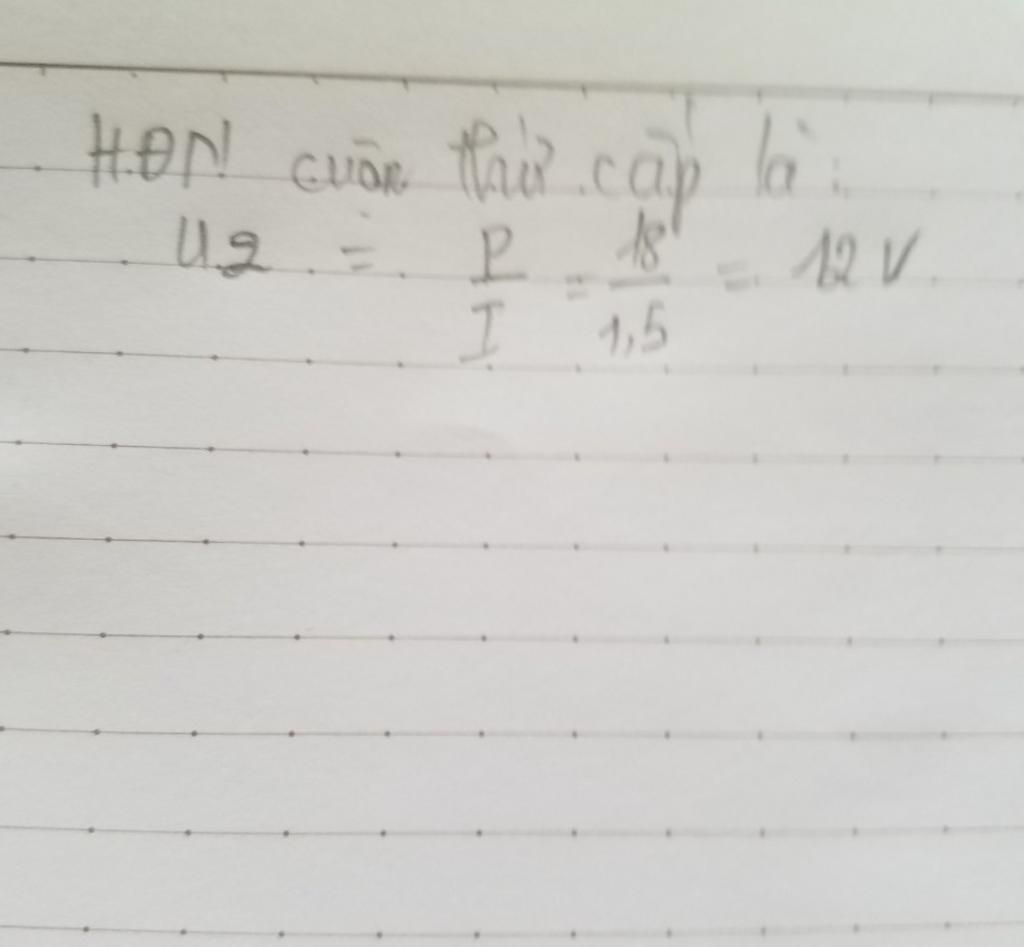 HĐN cuộn thứ cấp là:
U2 = P/I = 18/1,5 = 12V